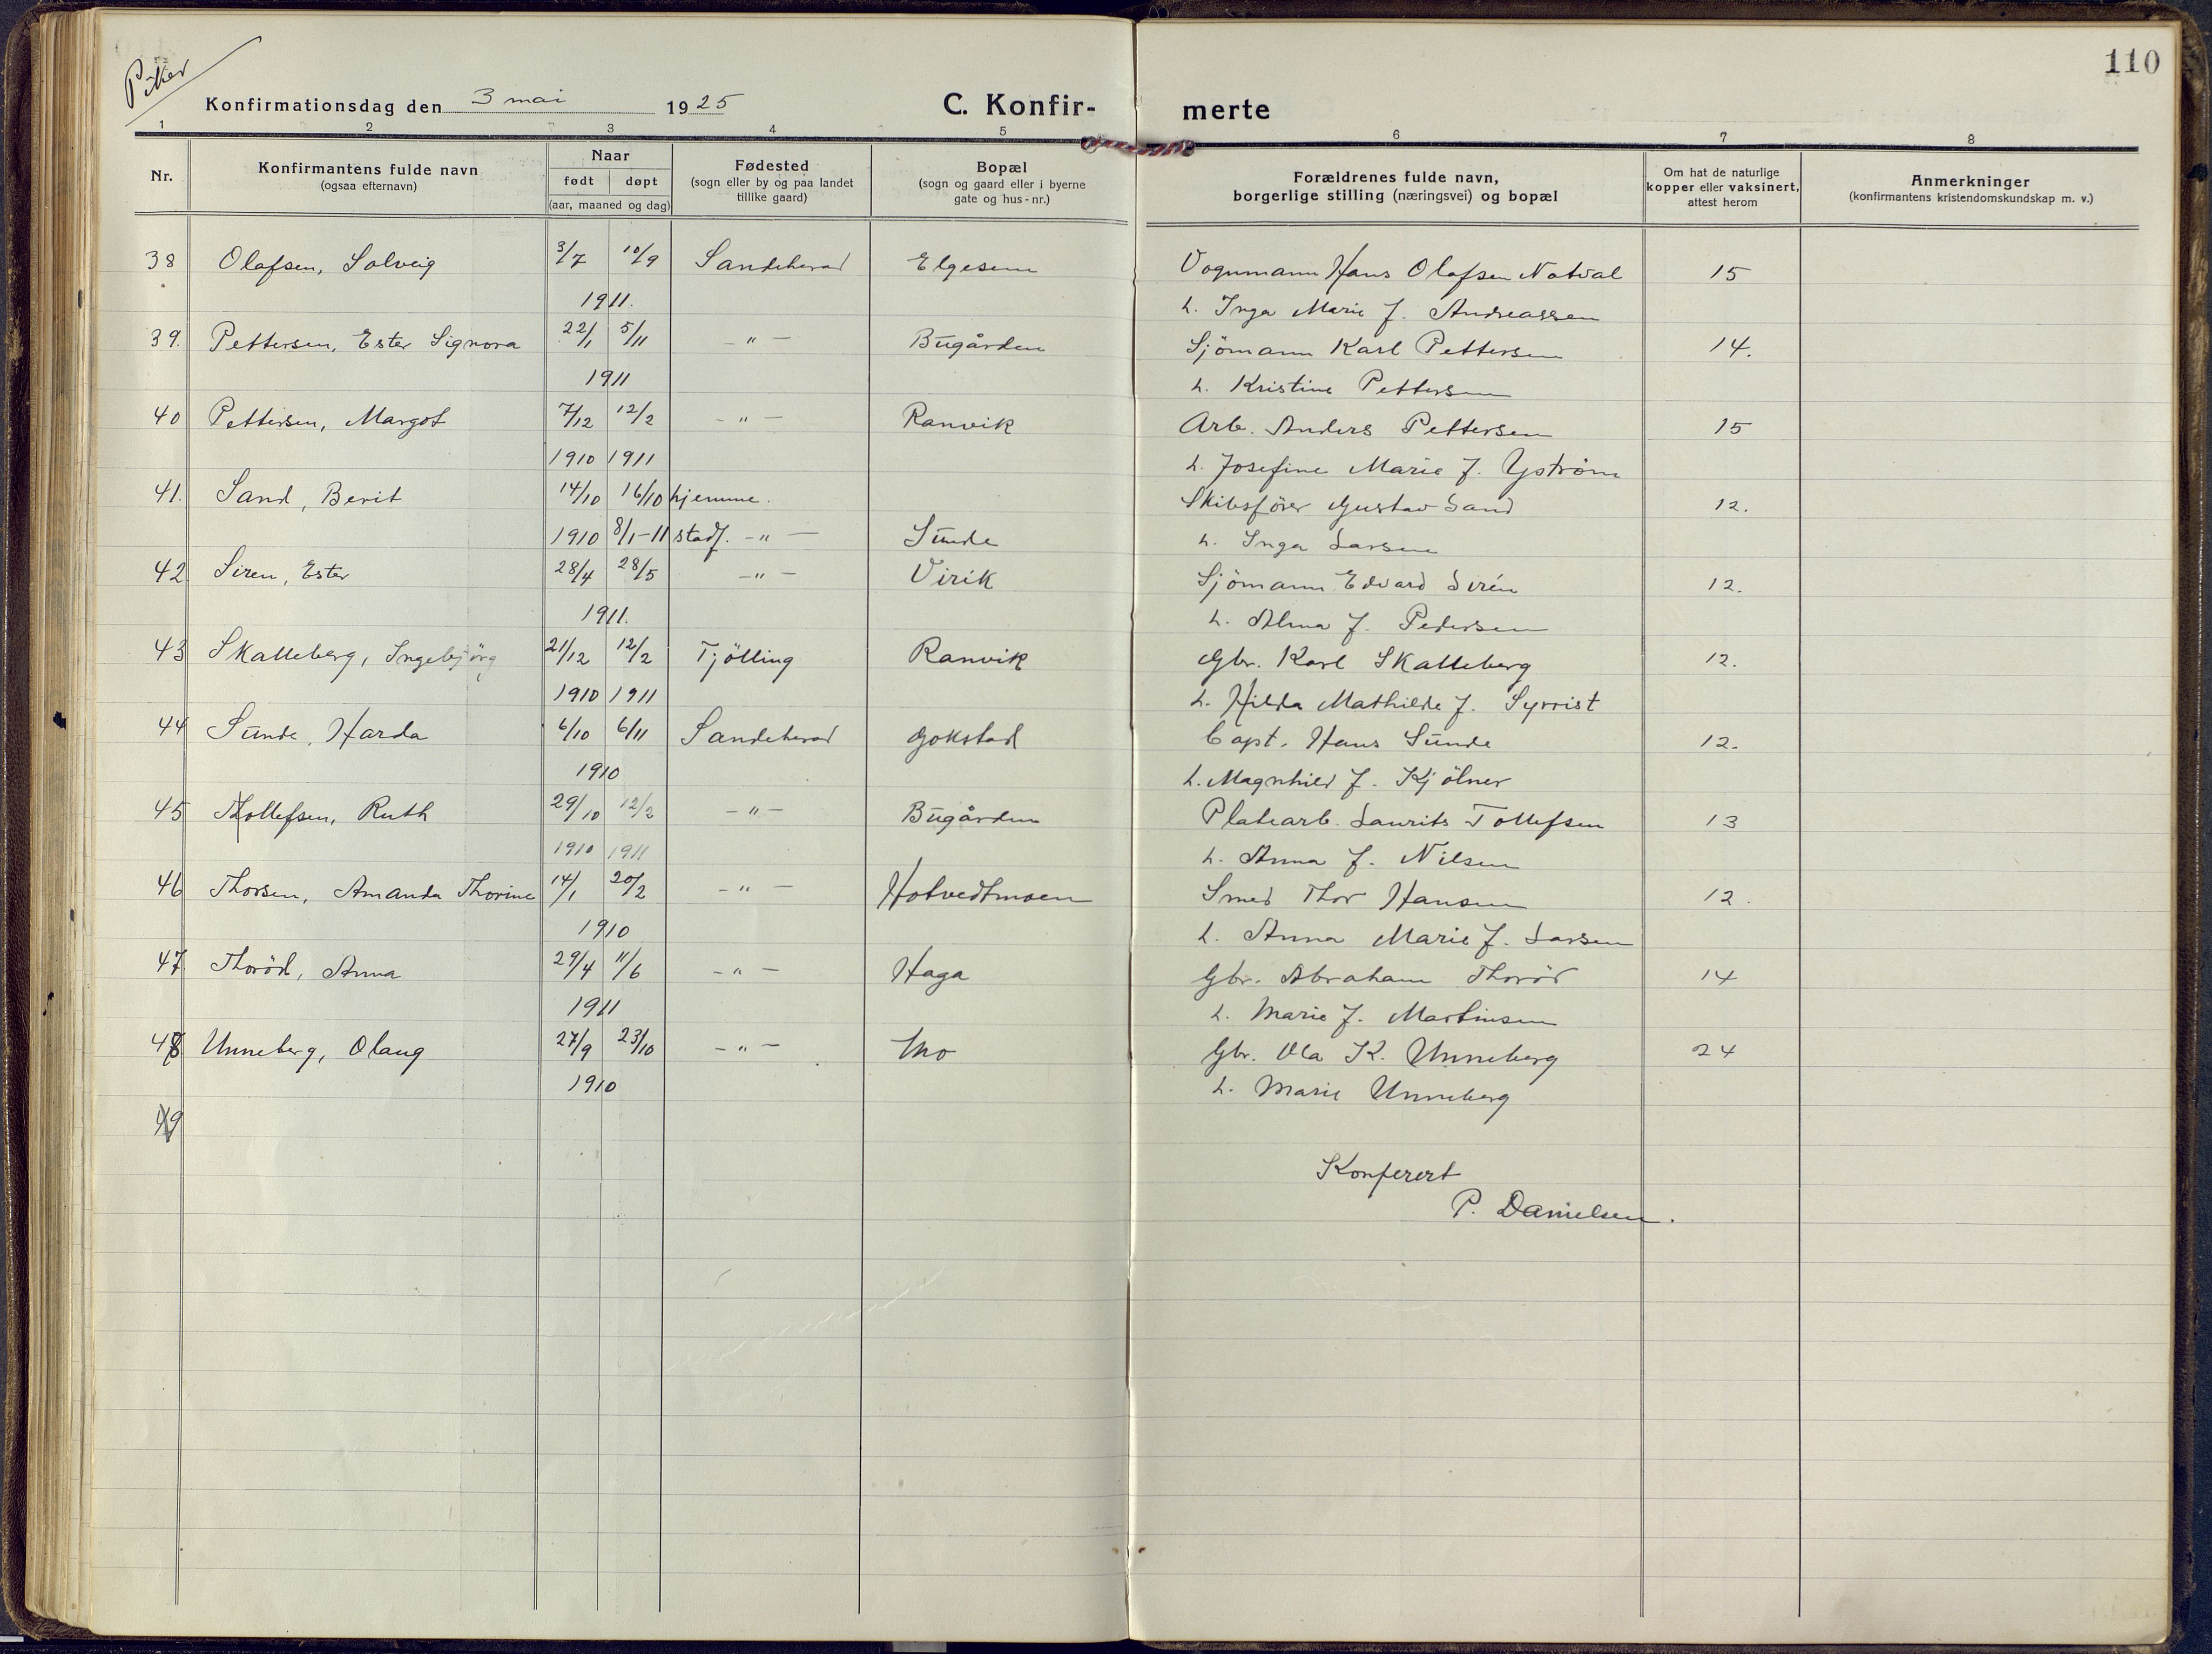 Piker
110
Konfirmationsdag den 3 mai 1925
C. Konfir-
merte
1 2 3 4 5 6 7 8
Nr.
Konfirmantens fulde navn
(ogsaa efternavn)
Naar
født døpt
(aar, maaned og dag)
Fødested
(sogn eller by og paa landet
tillike gaard)
Bopæl
(sogn og gaard eller i byerne
gate og hus-nr.)
Forældrenes fulde navn,
borgerlige stilling (næringsvei) og bopæl
Om hat de naturlige
kopper eller vaksinert,
attest herom
Anmerkninger
(konfirmantens kristendomskundskap m. v.)
38 Olafsen, Solveig 3/7 10/9 Sandeherad Elgesem Vognmann Hans Olafsen Natval 15
1911. h. Inga Marie f. Andreassen
39. Pettersen, Ester Signora 22/1 5/11 -"- Bugården Sjömann Karl Pettersen 14.
1911 h. Kristine Pettersen
40 Pettersen, Margot 7/12 12/2 -"- Ranvik Arb. Anders Pettersen 15
1910 1911 h. Josefine Marie f. Yström
41. Sand, Berit 14/10 16/10 hjemme. Skibsförer Gustav Sand 12.
1910 8/1-11 stadf. -"- Sunde h. Inga Larsen
42 Siren, Ester 28/4 28/5 -"- Virik Sjömann Edvard Sirén 12.
1911. h. Alma f. Pedersen
43 Skalleberg, Ingebjörg 21/12 12/2 Tjölling Ranvik Gbr. Karl Skalleberg 12.
1910 1911 h. Hilda Mathilde f. Syrrist
44 Sunde, Harda 6/10 6/11 Sandeherad Gokstad Capt. Hans Sunde 12.
1910 h. Magnhild f. Kjölner
45 Tollefsen, Ruth 29/10 12/2 -"- Bugården Platearb. Laurits Tollefsen 13
1910 1911 h. Anna f. Nilsen
46 Thorsen, Amanda Thorine 14/1 20/2 -"- Hotvedtmoen Smed Thor Hansen 12.
1910 h. Anna Marie f. Larsen
47 Thoröd, Anna 29/4 11/6 -"- Haga Gbr. Abraham Thoröd 14
1911 h. Marie f. Martinsen
48 Unneberg, Olaug 27/9 23/10 -"- Mo Gbr. Ola K. Unneberg 24
1910 h. Marie Unneberg
49
Konferert
P. Danielsen.